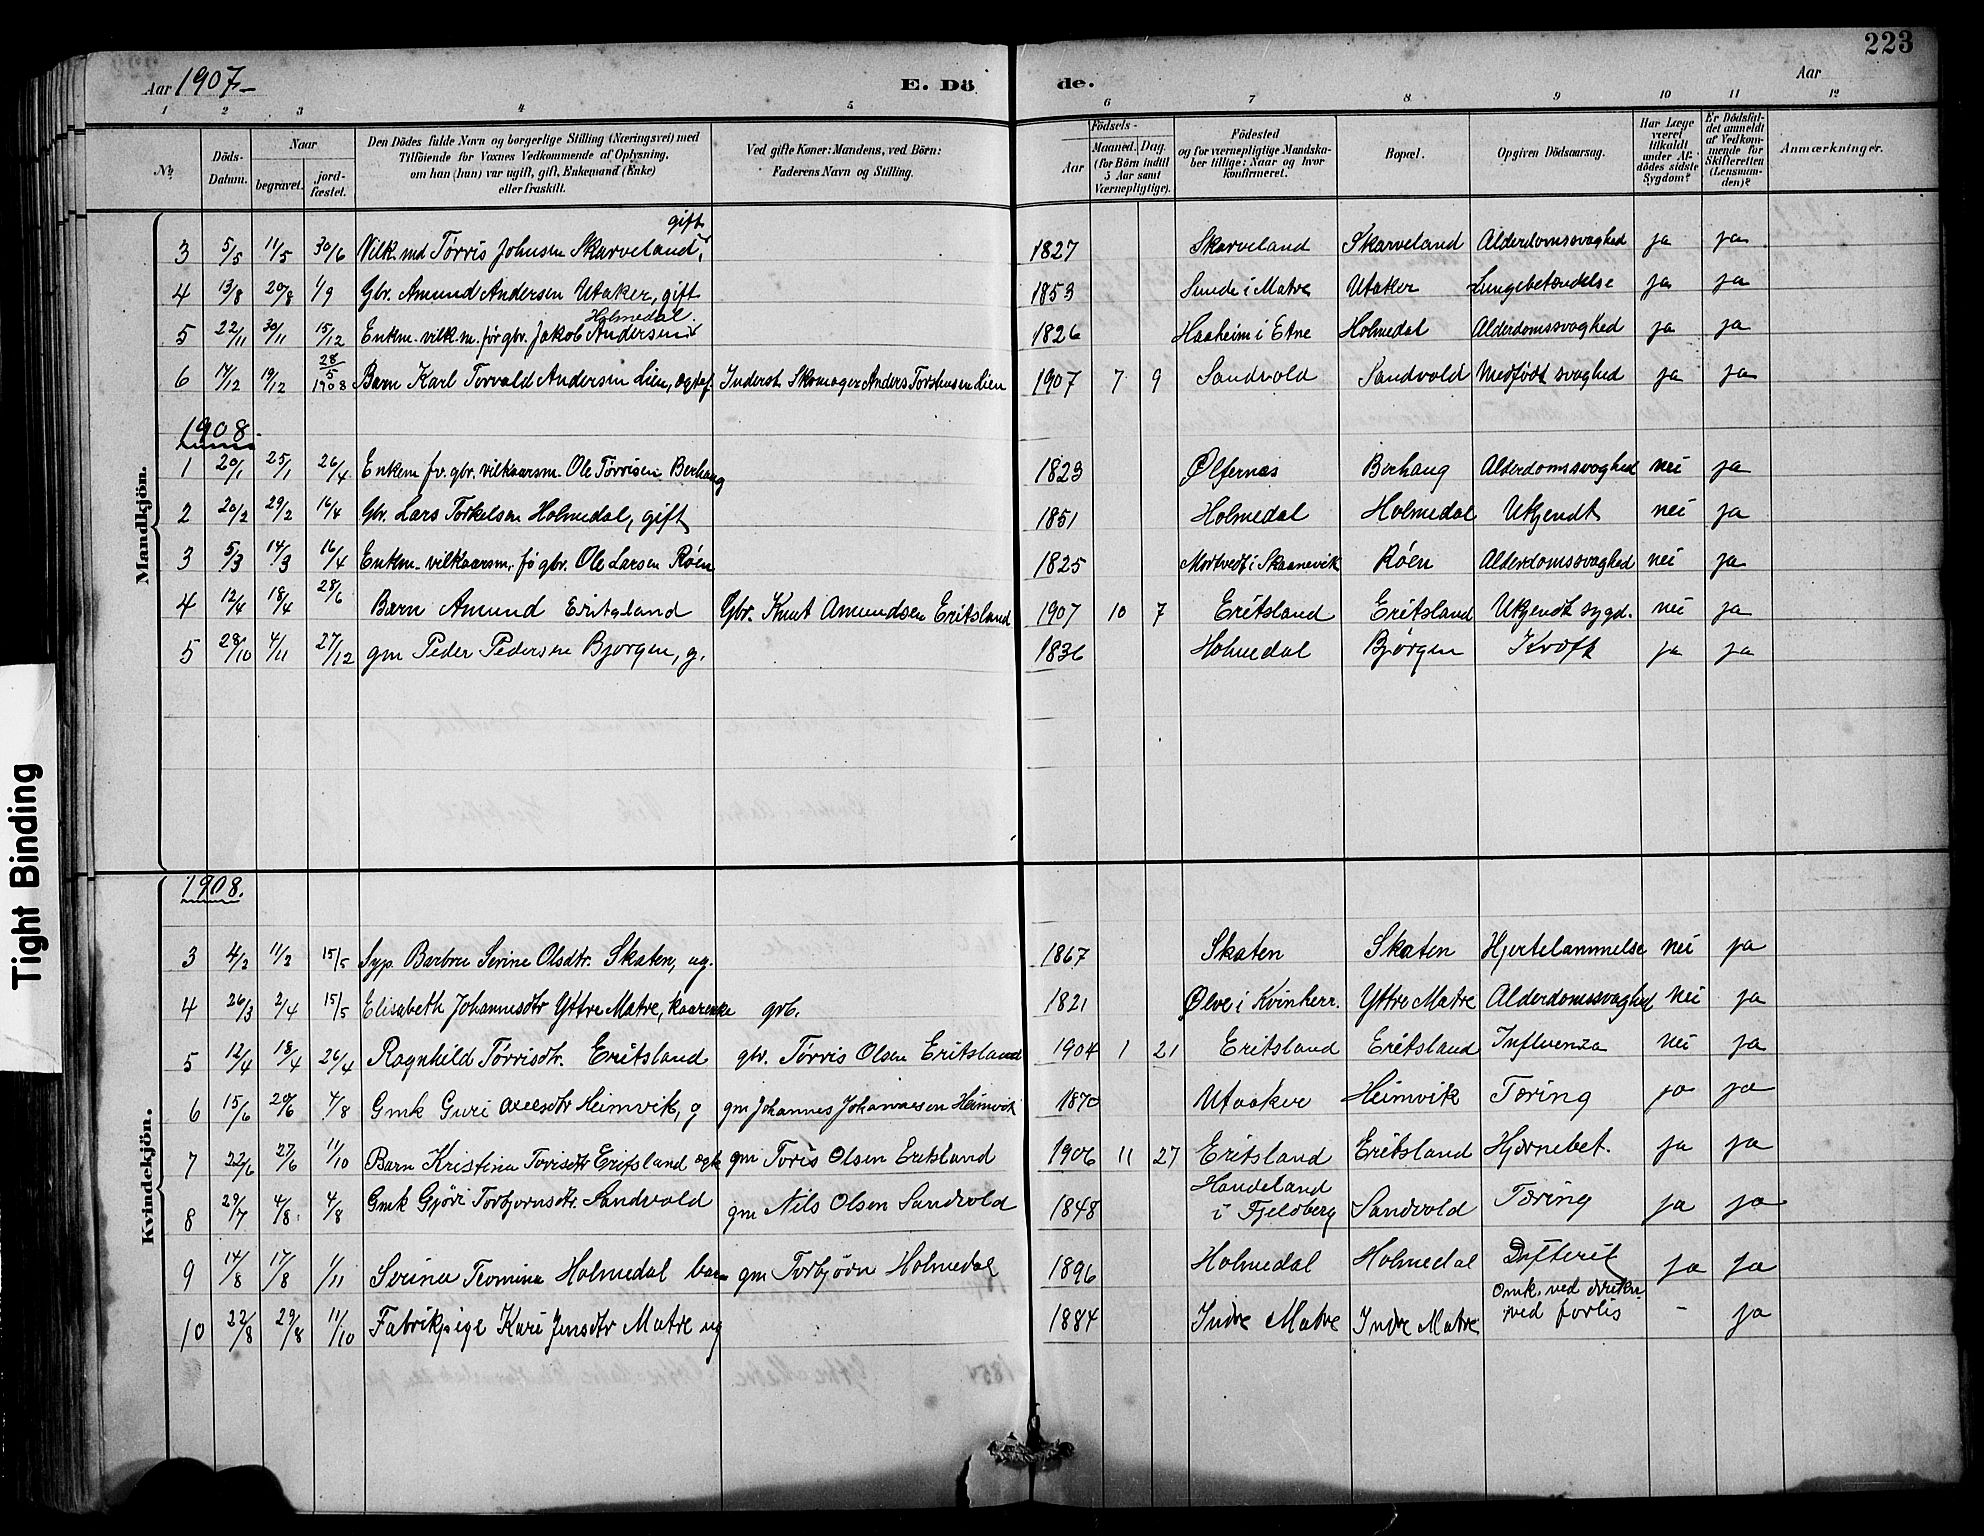 223
Aar 1907 - E. Dö de. Aar
1 2 3 4 5 6 7 8 9 10 11 12
No. Döds-Datum. Naar begravet. jord-fæstet. Den Dödes fulde Navn og borgerlige Stilling (Næringsvei) med Tilföiende for Voxnes Vedkommende af Oplysning, om han (hun) var ugift, gift, Enkemand (Enke) eller fraskilt. Ved gifte Koner: Mandens, ved Börn: Faderens Navn og Stilling. Födsels- Aar Maaned. Dag. (for Börn indtil 5 Aar samt Værnepligtige). Födested og for værnepligtige Mandskaber tillige: Naar og hvor konfirmeret. Bopæl. Opgiven Dödsaarsag. Har Læge været tilkaldt under Afdödes sidste Sygdom? Er Dödsfaldet anmeldt af Vedkommende for Skifteretten (Lensmanden)? Anmærkninger.
Mandkjön.
3 5/5 11/5 30/6 Vilk.md Tørris Johnsen Skarveland, gift 1827 Skarveland Skarveland Alderdomssvaghed ja ja
4 13/8 20/8 1/9 Gbr. Amund Andersen Utaker, gift 1853 Sunde i Matre Utaker Lungebetændelse ja ja
5 22/11 30/11 15/12 Enkem. vilk.m. før gbr. Jakob Andersen Holmedal. 1826 Haaheim i Etne Holmedal Alderdomssvaghed ja ja
6 17/12 19/12 28/5 1908 Barn Karl Torvald Andersen Lien, ægtef. Inderst Skomager Anders Torstensen Lien 1907 7 9 Sandvold Sandvold Medfødt svaghed ja ja
1908.
1 20/1 25/1 26/4 Enkem fv. gbr. vilkaarsm. Ole Tørrisen Berhaug 1823 Ølfernæs Berhaug Alderdomssvaghed nei ja
2 20/2 29/2 16/4 Gbr. Lars Torkelsen Holmedal, gift 1851 Holmedal Holmedal Ukjendt nei ja
3 5/3 14/3 16/4 Enkem. vilkaarsm. fø gbr. Ole Larsen Røen 1825 Mortvedt i Skaanevik Røen Alderdomssvaghed nei ja
4 12/4 18/4 28/6 Barn Amund Eritsland Gbr. Knut Amundsen Eritsland 1907 10 7 Eritsland Eritsland Ukjendt sygd. nei ja
5 28/10 4/11 27/12 gm Peder Pedersen Bjørgen, g. 1836 Holmedal Bjørgen Kræft ja ja
Kvindekjön.
1908.
3 4/2 11/2 15/5 Syp. Barbru Serine Olsdtr. Skaten, ug. 1867 Skaten Skaten Hjertelammelse nei ja
4 26/3 2/4 15/5 Elisabeth Johannesdtr Yttre Matre, kaarenke grb. 1821 Ølve i Kvinherr. Yttre Matre Alderdomssvaghed nei ja
5 12/4 18/4 26/4 Ragnhild Tørrisdtr. Eritsland gbr. Tørris Olsen Eritsland 1904 1 21 Eritsland Eritsland Influenza nei ja
6 15/6 20/6 4/8 Gmk Guri Axelsdtr Heimvik, g gm Johannes Johannesen Heimvik 1870 Utaaker Heimvik Tæring ja ja
7 22/6 27/6 11/10 Barn Kristina Torisdtr Eritsland ægte gm Toris Olsen Eritsland 1906 11 27 Eritsland Eritsland Hjernebet. ja ja
8 29/7 4/8 4/8 Gmk Gjøri Torbjørnsdtr Sandvold gm Nils Olsen Sandvold 1848 Handeland i Fjeldberg Sandvold Tæring ja ja
9 14/8 17/8 1/11 Serina Teomina Holmedal barn gm Torbjørn Holmedal 1896 Holmedal Holmedal Difterit ja ja
10 22/8 29/8 11/10 Fabrikpige Kari Jensdtr Matre ug 1884 Indre Matre Indre Matre Omk. ved drukn. ved forlis - ja
Tight Binding